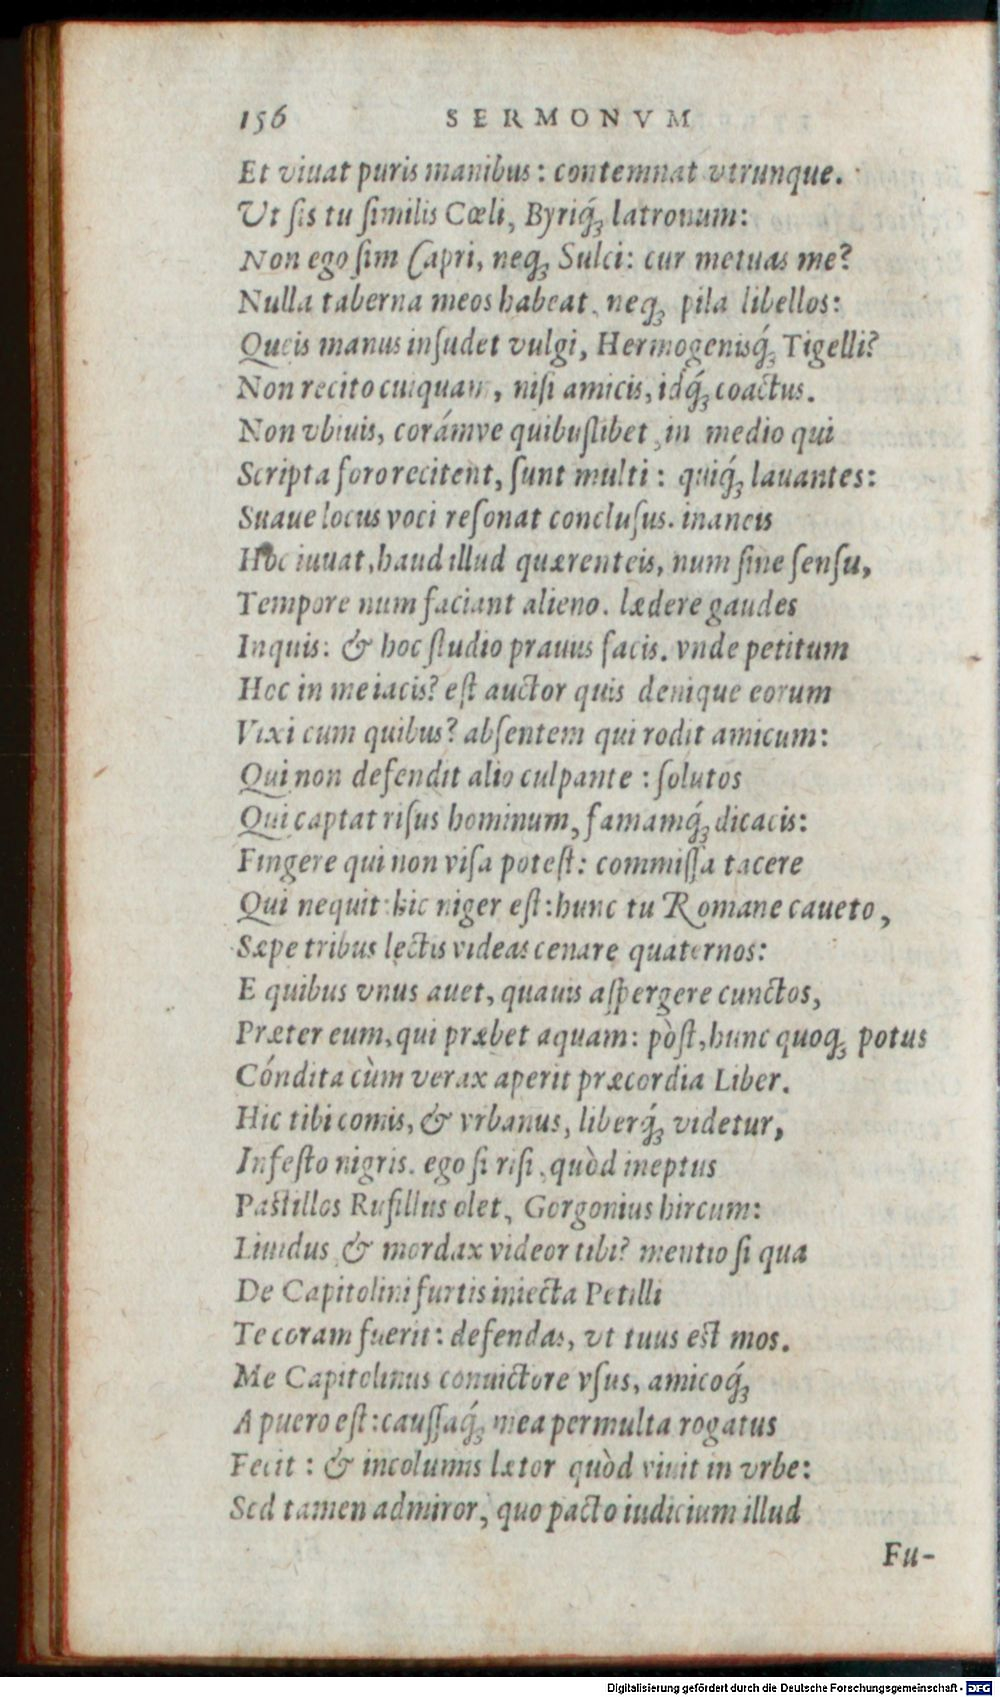 156 SERMONVM
Et viuat puris manibus: contemnat vtrunque.
Ut sis tu similis Cœli, Byriq́ꝫ latronum:
Non ego sim Capri, neqꝫ Sulci: cur metuas me?
Nulla taberna meos habeat, neqꝫ pila libellos:
Queis manus insudet vulgi, Hermogenisq́ꝫ Tigelli?
Non recito cuiquam, nisi amicis, idq́ꝫ coactus.
Non vbiuis, corámve quibuslibet, in medio qui
Scripta foro recitent, sunt multi: quiq́ꝫ lauantes:
Suaue locus voci resonat conclusus. inaneis
Hoc iuuat, haud illud quærenteis, num sine sensu,
Tempore num faciant alieno. lædere gaudes
Inquis: & hoc studio prauus facis. vnde petitum
Hoc in me iacis? est auctor quis denique eorum
Vixi cum quibus? absentem qui rodit amicum:
Qui non defendit alio culpante: solutos
Qui captat risus hominum, famamq́ꝫ dicacis:
Fingere qui non visa potest: commissa tacere
Qui nequit: hic niger est: hunc tu Romane caueto,
Sæpe tribus lectis videas cenare quaternos:
E quibus vnus auet, quauis aspergere cunctos,
Præter eum, qui præbet aquam: pòst, hunc quoqꝫ potus
Cóndita cùm verax aperit præcordia Liber.
Hic tibi comis, & vrbanus, liberq́ꝫ videtur,
Infesto nigris. ego si risi, quòd ineptus
Pastillos Rufillus olet, Gorgonius hircum:
Liuidus & mordax videor tibi? mentio si qua
De Capitolini furtis iniecta Petilli
Te coram fuerit: defendas, vt tuus est mos.
Me Capitolinus conuictore vsus, amicoq́ꝫ
A puero est: caussaq́ꝫ mea permulta rogatus
Fecit: & incolumis lætor quòd viuit in vrbe:
Sed tamen admiror, quo pacto iudicium illud
Fu-
Digitalisierung gefördert durch die Deutsche Forschungsgemeinschaft - DFG